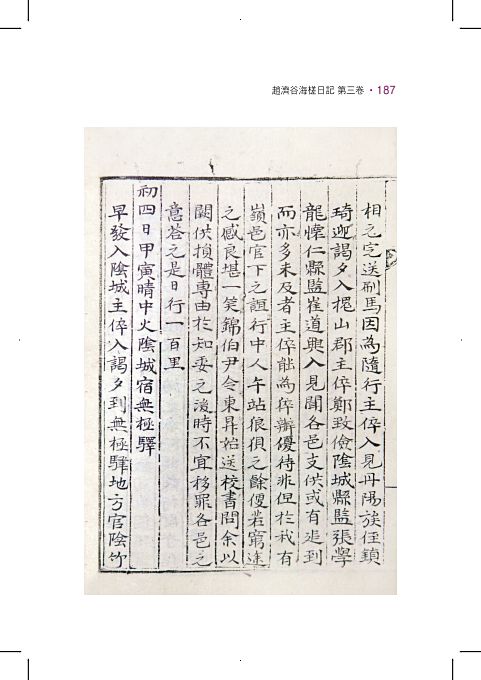 趙濟谷海槎日記 第三卷 · 187
相之宅送刷馬因為隨行主倅入見丹陽族侄鎖
琦迎謁夕入槐山郡主倅鄭致儉陰城縣監張學
龍懷仁縣監崔道興入見聞各邑支供或有迯到
而亦多未及者主倅能為倅辦優待非但於我有
嶺邑官下之誼行中人午站狼狽之餘便若窮途
之感良堪一笑錦伯尹令東昇始送校書問余以
闕供損體專由於知委之後時不宜移罪各邑之
意答之是日行一百里
初四日甲寅晴中火陰城宿無極驛
早發入陰城主倅入謁夕到無極驛地方官陰竹